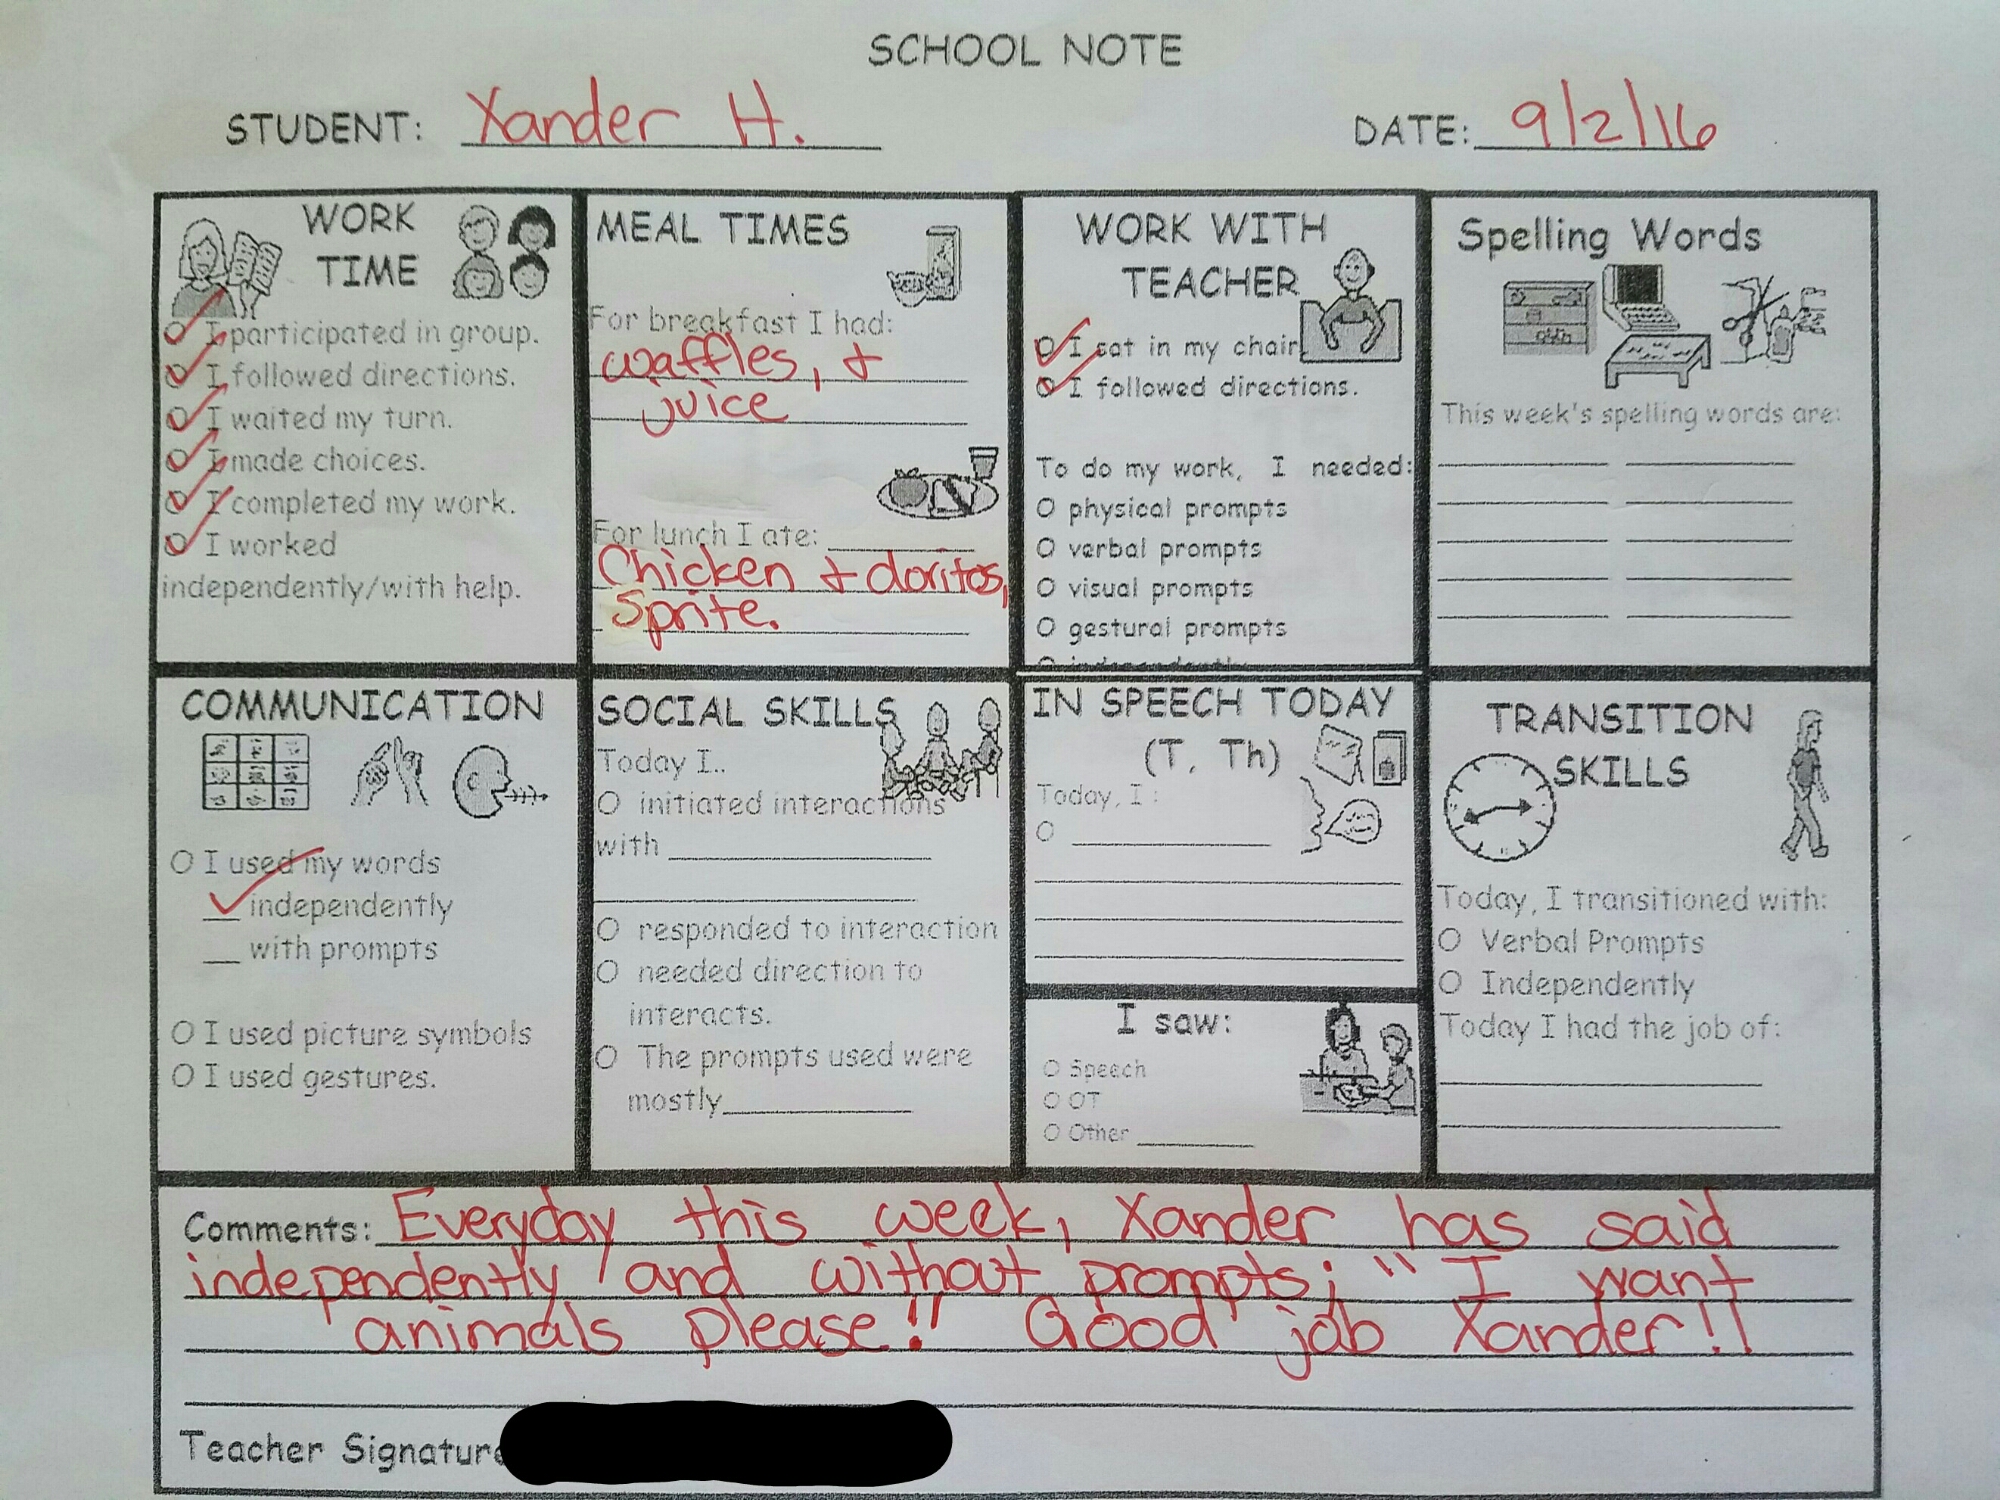 SCHOOL NOTE
STUDENT: Xander H.
DATE: 9/2/16
WORK
TIME
O I participated in group.
O I followed directions.
O I waited my turn.
O I made choices.
O I completed my work.
O I worked
independently/with help.
MEAL TIMES
For breakfast I had:
waffles, +
juice
For lunch I ate:
Chicken + doritos,
Sprite.
WORK WITH
TEACHER
O I sat in my chair
O I followed directions.
To do my work, I needed:
O physical prompts
O verbal prompts
O visual prompts
O gestural prompts
O independently
Spelling Words
This week's spelling words are:
COMMUNICATION
O I used my words
independently
with prompts
O I used picture symbols
O I used gestures.
SOCIAL SKILLS
Today I..
O initiated interactions
with
O responded to interaction
O needed direction to
interacts.
O The prompts used were
mostly
IN SPEECH TODAY
(T, Th)
Today, I :
O
I saw:
O Speech
O OT
O Other
TRANSITION
SKILLS
Today, I transitioned with:
O Verbal Prompts
O Independently
Today I had the job of:
Comments: Everyday this week, Xander has said
independently and without prompts; "I want
animals please!" Good job Xander!!
Teacher Signature